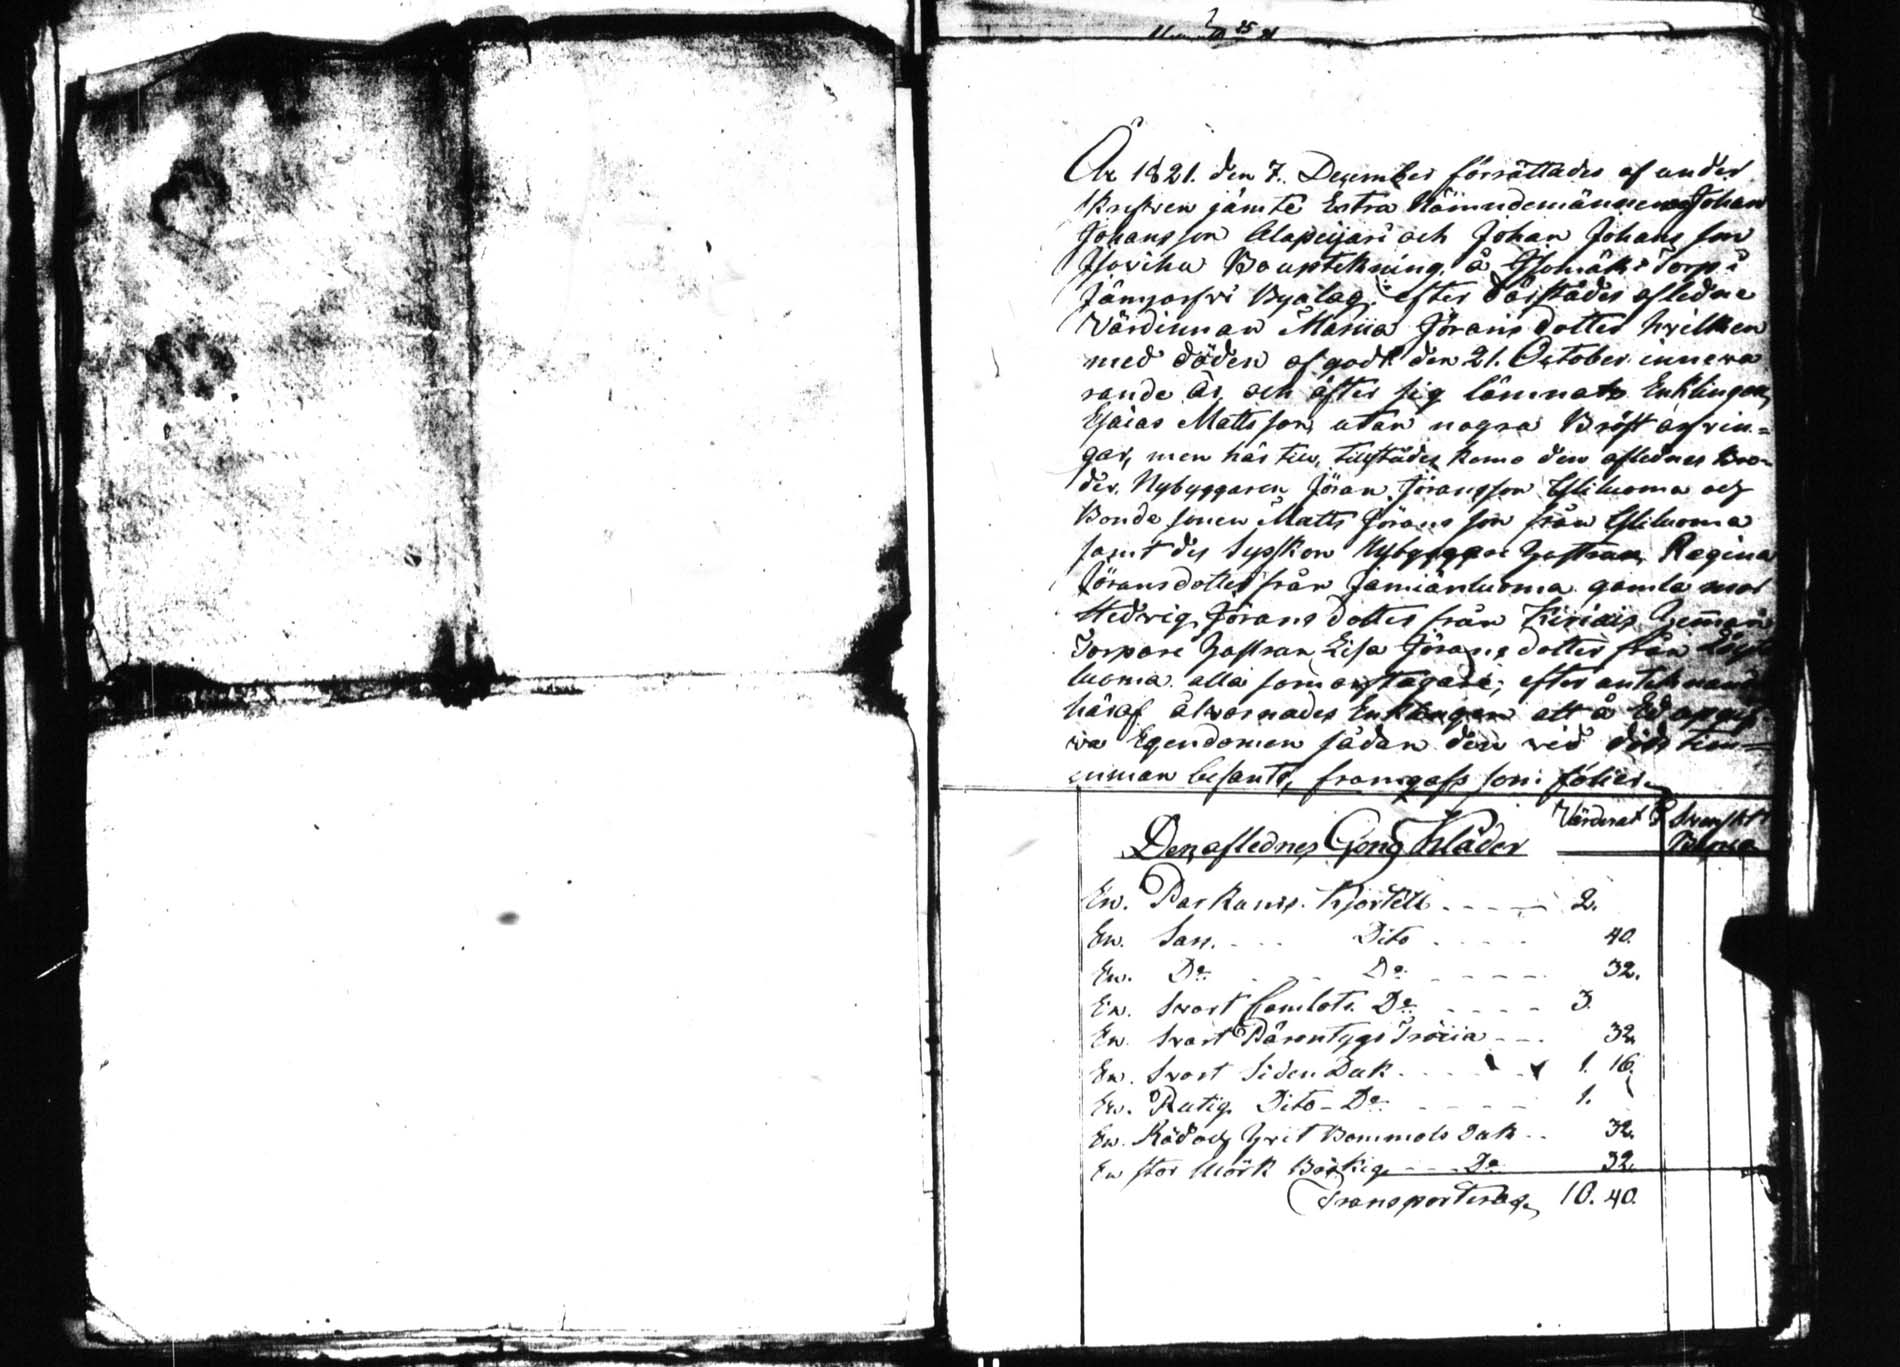 År 1821. den 7. December förrättades af under
skrefven jämte Extra Nämndemännen Johan
Johansson Alapeijari och Johan Johansson
Isoviha Bouptekning å Isomäki Torp i
Jämjärfvi Byalag, efter därstädes afledne
Värdinnan Maria Jöransdotter hvilken
med döden afgodt den 21. October inneva
rande år, och äfter sig lämnat Enklingen
Esaias Mattsson, utan nogra Bröst arfvin=
gar, men här till, tillstädes komo den aflednes Bro=
der, Nybyggaren Jöran Jöransson Yliluoma och
Bonde sonen Matts Jöransson från Yliluoma
samt des Syskon Nybyggare hustrun Regina
Jöransdotter från Jämiänluoma gamla mor
Hedvig Jöransdotter från
Torpare hustrun Lisa Jöransdotter från
luoma alla som arftagare; efter
häraf Enklingen att å Ed
va Egendomen sådan den vid döds tim=
man befants, framgafs som följer.
Den aflednes Gong Kläder Värderat
En. Paskanis. Kjortell - - - - 2.
En. Sars. - - - Dito - - - - 40.
En. Do - - - Do - - - - 32.
En. Svart Camlots Do - - - - 3.
En. Svart Bärentygs Tröiia - - - 32.
En. Svart Siden Duk - - - - 1. 16.
En. Rutig. Dito - Do - - - - 1.
En. Röd och hvit Bommols Duk - - 32.
En stor Mörk - - - Do 32.
Transporteras 10. 40.